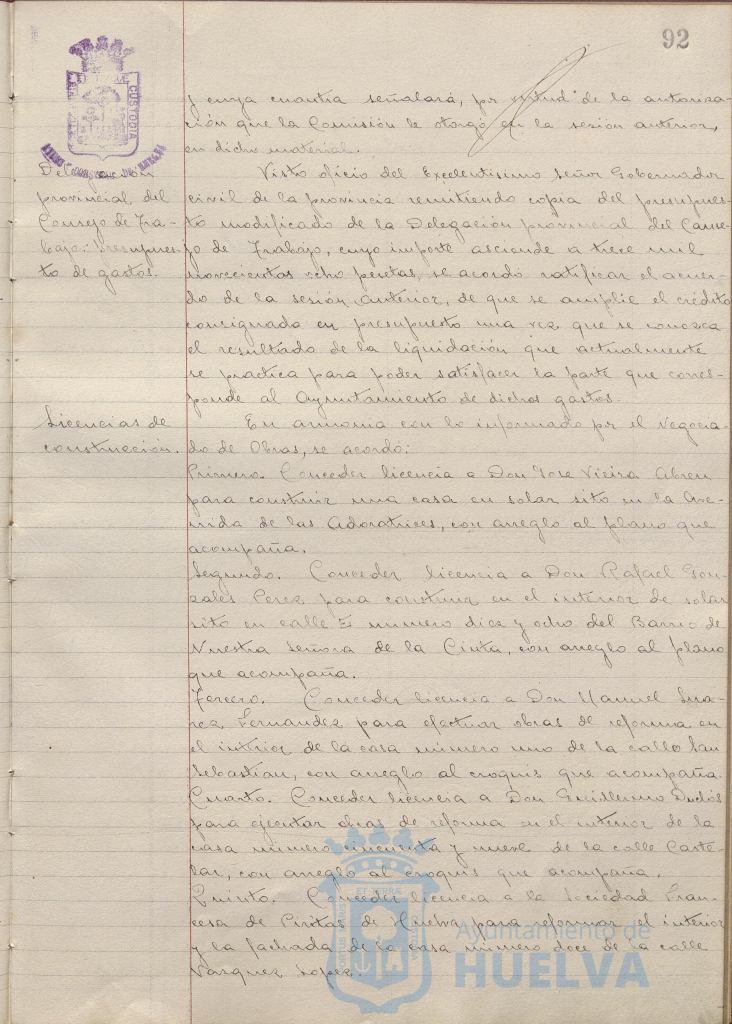 92
y cuya cuantia señalará, por virtud de la autoriza-
ción que la Comisión le otorgó en la sesión anterior,
en dicho material.
Delegación
provincial del
Consejo de Tra-
bajo: Presupues-
to de gastos.
Visto oficio del Excelentisimo Señor Gobernador
civil de la provincia remitiendo copia del presupues-
to modificado de la Delegación provincial del Conse-
jo de Trabajo, cuyo importe asciende a trece mil
novecientas ocho pesetas, se acordó ratificar el acuer-
do de la sesión anterior, de que se amplie el crédito
consignado en presupuesto una vez que se conozca
el resultado de la liquidación que actualmente
se practica para poder satisfacer la parte que corres-
ponde al Ayuntamiento de dichos gastos.
Licencias de
construcción.
En armonia con lo informado por el Negocia-
do de Obras, se acordó:
Primero. Conceder licencia a Don Jose Vieira Abreu
para construir una casa en solar sito en la Ave-
nida de las Adoratrices, con arreglo al plano que
acompaña.
Segundo. Conceder licencia a Don Rafael Gon-
zales Perez para construir en el interior de solar
sito en calle E numero diez y ocho del Barrio de
Nuestra Señora de la Cinta, con arreglo al plano
que acompaña.
Tercero. Conceder licencia a Don Manuel Sua-
rez Fernandez para efectuar obras de reforma en
el interior de la casa número uno de la calle San
Sebastian, con arreglo al croquis que acompaña.
Cuarto. Conceder licencia a Don Guillermo Duclós
para ejecutar obras de reforma en el interior de la
casa número cincuenta y nueve de la calle Caste-
lar, con arreglo al croquis que acompaña.
Quinto. Conceder licencia a la Sociedad Fran-
cesa de Piritas de Huelva para reformar el interior
y la fachada de la casa número doce de la calle
Vazquez Lopez.
CUSTODIA
Ayuntamiento de
HUELVA